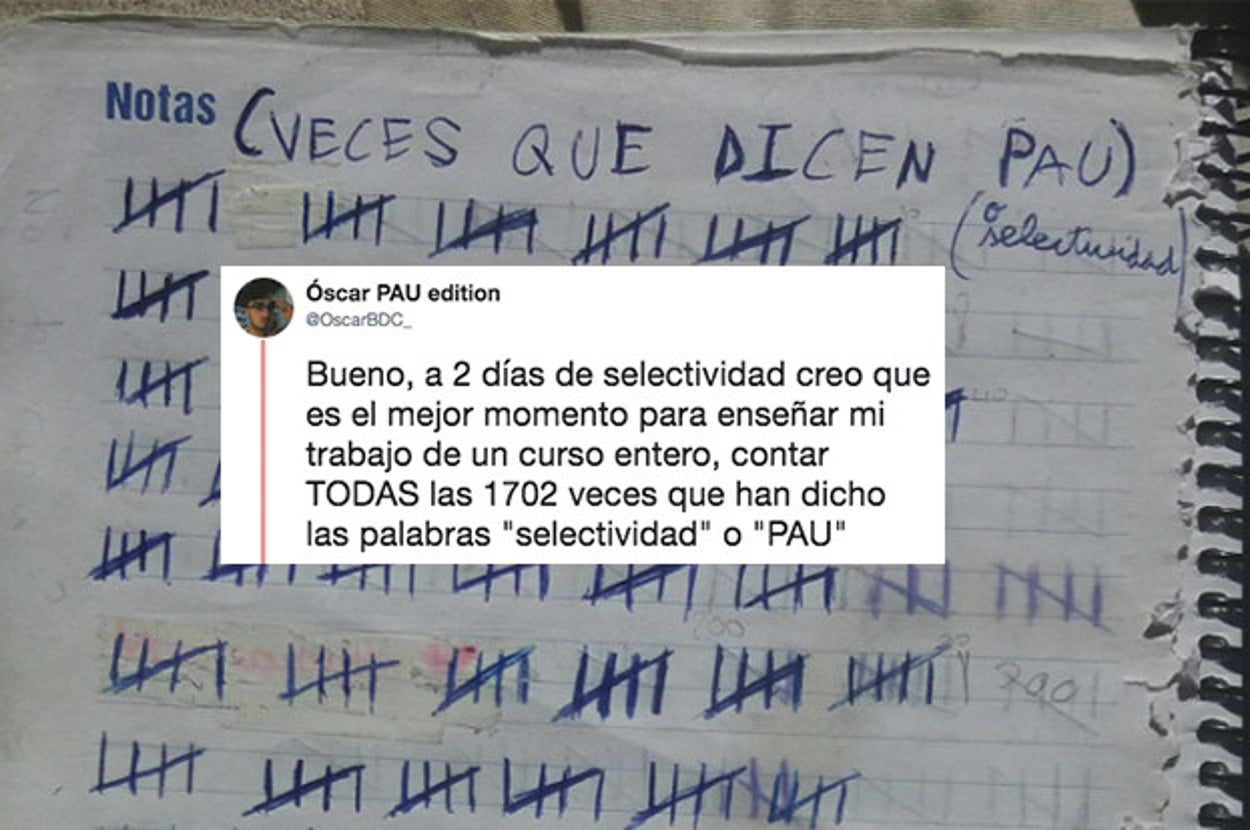 Notas (VECES QUE DICEN PAU)
(o selectividad)
Óscar PAU edition
@OscarBDC_
Bueno, a 2 días de selectividad creo que
es el mejor momento para enseñar mi
trabajo de un curso entero, contar
TODAS las 1702 veces que han dicho
las palabras "selectividad" o "PAU"
200
290